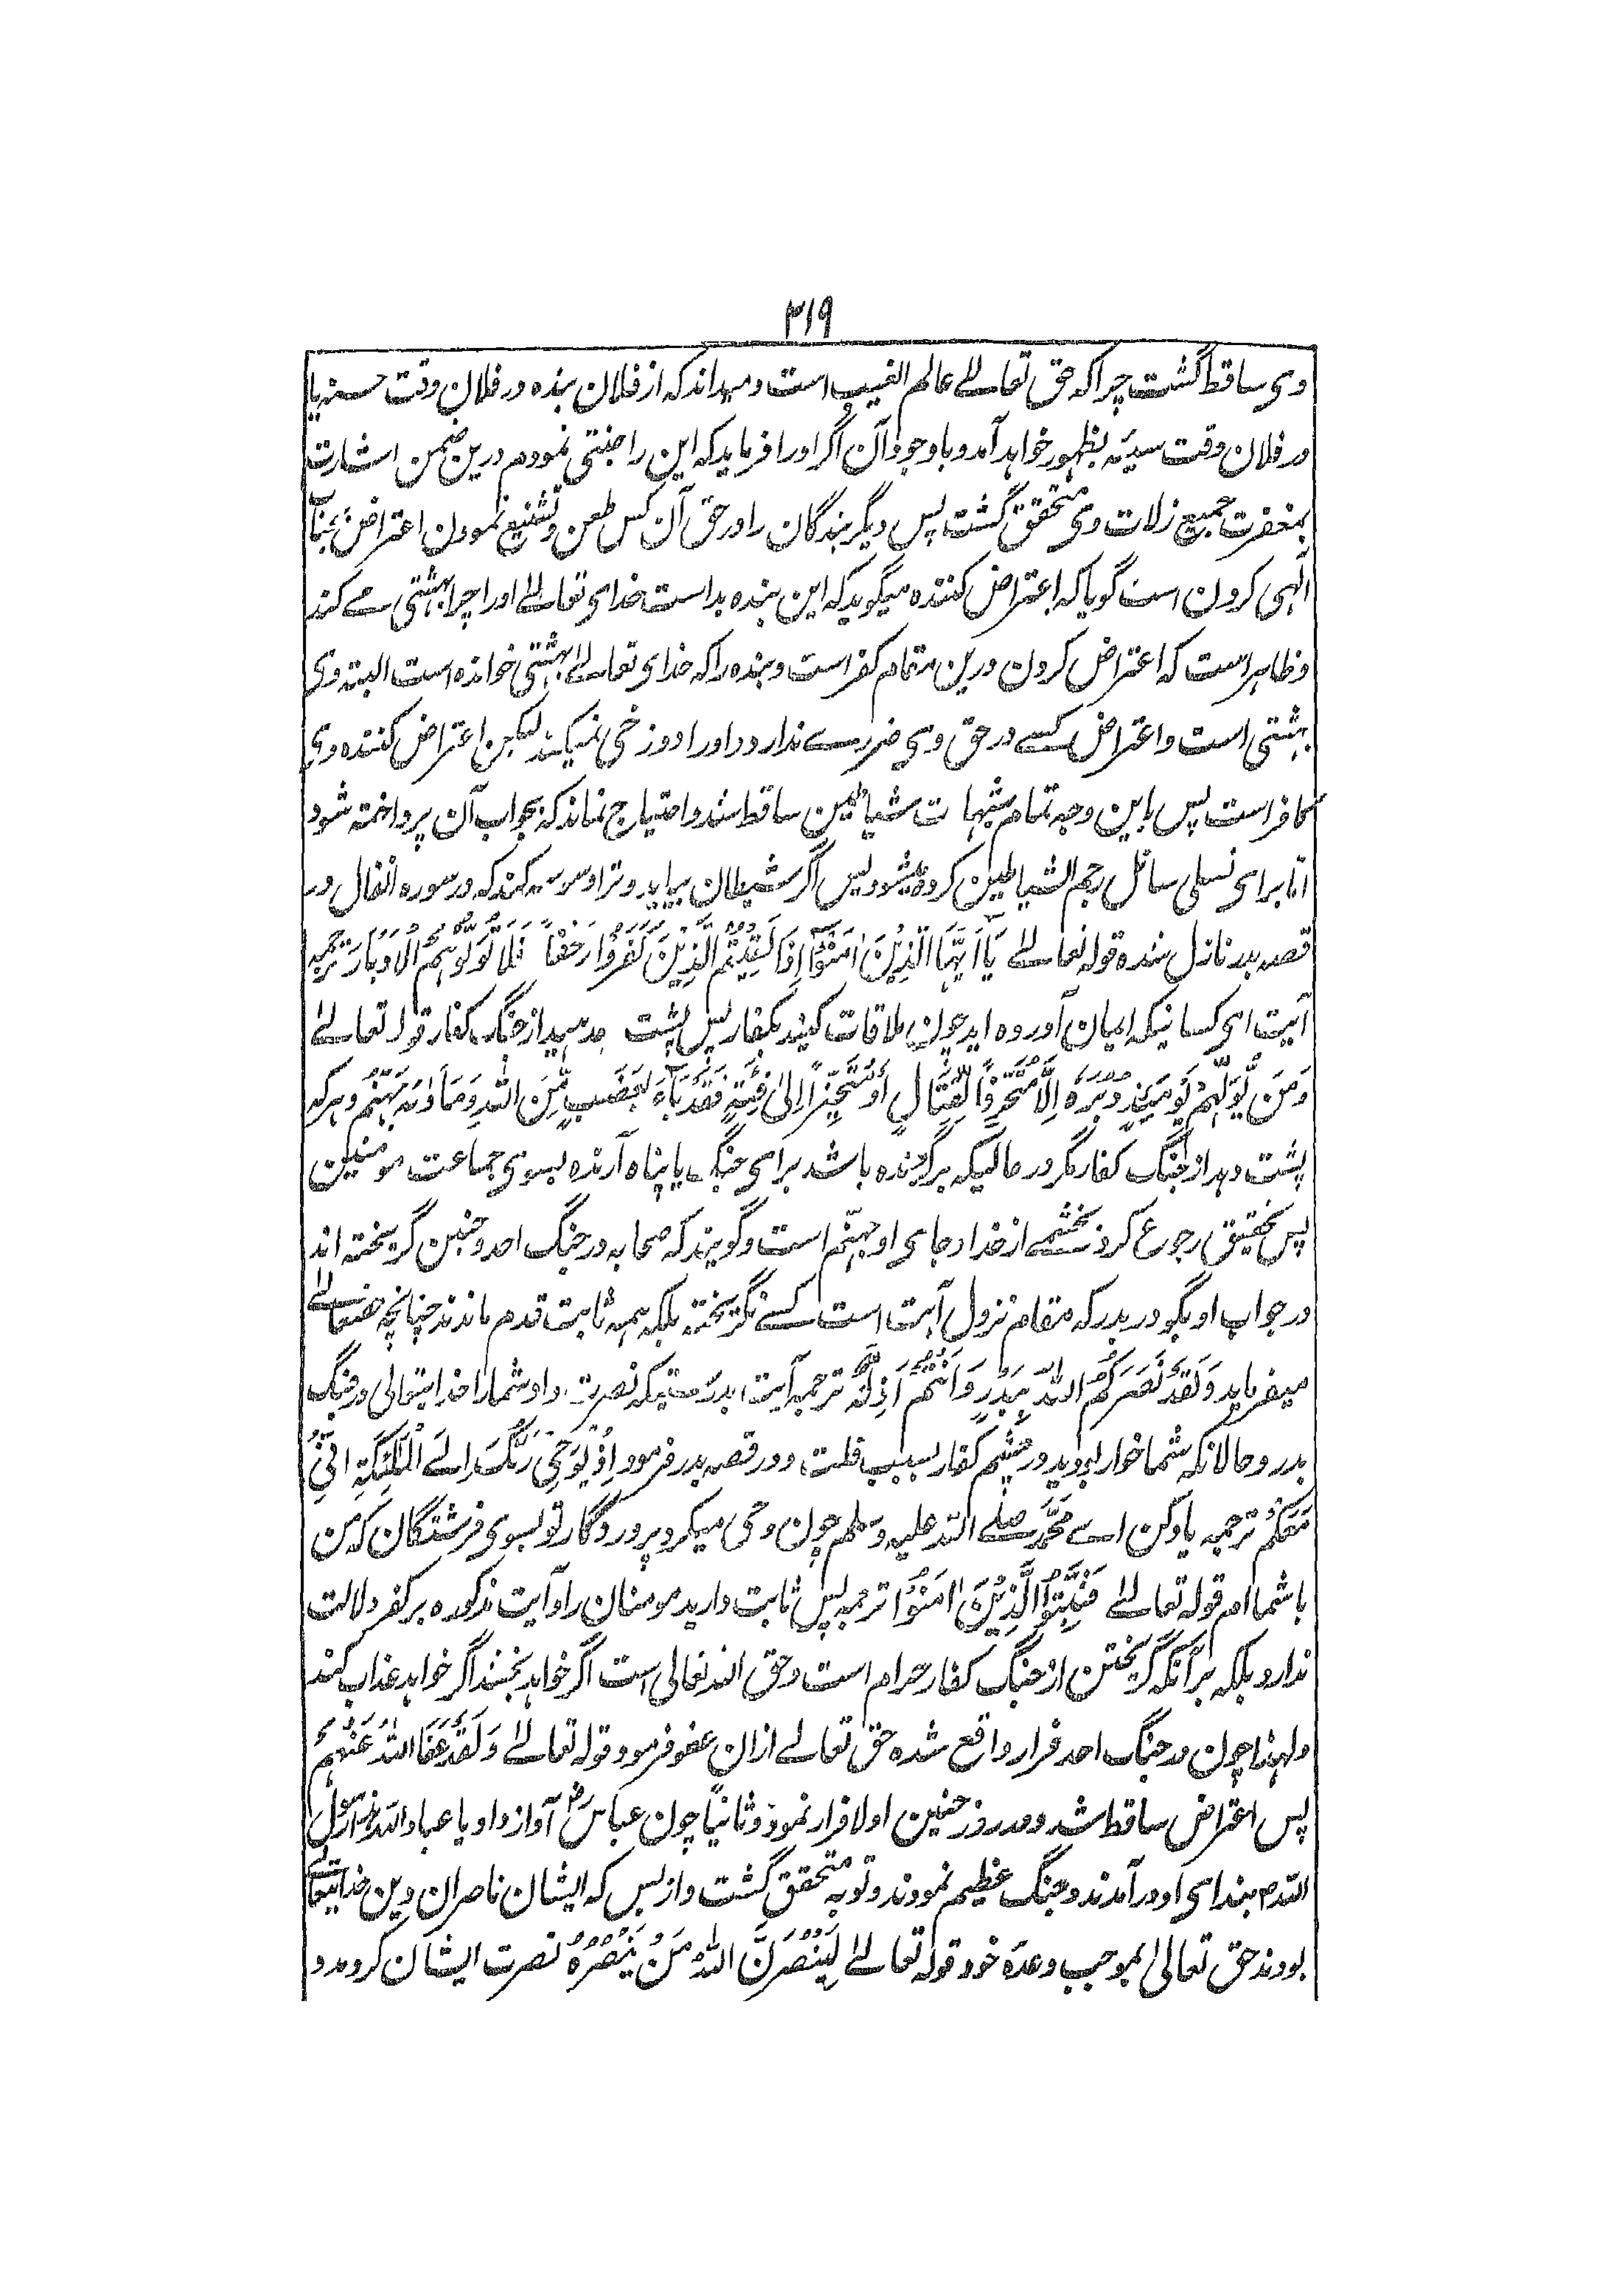 ۳۱۹
وی ساقط گشت چراکه حق تعالے عالم الغیب است و میداند که از فلان بنده در فلان وقت حسنه یا
در فلان وقت سیئه بظهور خواهد آمد و باوجود آن اگر اورا فرماید که این را جنتی نمودم درین ضمن اشارت
بمغفرت جمیع زلات وی متحقق گشت پس دیگر بندگان را در حق آن کس طعن و تشنیع نمودن اعتراض بجناب
الٰهی کردن است گویا که اعتراض کننده میگوید که این بنده بد است خدای تعالےٰ اورا چرا بهشتی مے کند
و ظاهر است که اعتراض کردن درین مقام کفر است و بنده را که خدای تعالےٰ بهشتی خوانده است البته وی
بهشتی است و اعتراض کسے در حق وی ضررے ندارد و اورا دوزخی نمیکند لیکن اعتراض کننده وی
کافر است پس باین وجه تمام شبهات شیاطین ساقط شد و احتیاج نماند که بجواب آن پرداخته شود
اما برای تسلی سائل رجم الشیاطین کرده میشود پس اگر شیطان بیاید و ترا وسوسه کند که در سوره انفال در
قصه بدر نازل شده قوله تعالےٰ یَآ اَیُّهَا الَّذِیْنَ اٰمَنُوْٓا اِذَا لَقِیْتُمُ الَّذِیْنَ کَفَرُوْا زَحْفًا فَلَا تُوَلُّوْهُمُ الْاَدْبَارَ ترجمه
آیت ای کسانیکه ایمان آورده اید چون ملاقات کنید بکفار پس پشت مدهید از جنگ کفار قوله تعالےٰ
وَمَنْ یُّوَلِّهِمْ یَوْمَئِذٍ دُبُرَهٗٓ اِلَّا مُتَحَرِّفًا لِّقِتَالٍ اَوْ مُتَحَیِّزًا اِلٰی فِئَةٍ فَقَدْ بَآءَ بِغَضَبٍ مِّنَ اللّٰهِ وَمَاْوٰىهُ جَهَنَّمُ و هرکه
پشت دهد از جنگ کفار مگر در حالیکه برگردنده باشد برای جنگ یا پناه آرنده بسوی جماعت مومنین
پس بتحقیق رجوع کرد بخشمے از خدا و جای او جهنّم است و گویند که صحابه در جنگ احد و حنین گریخته اند
در جواب او بگو در بدر که مقام نزول آیت است کسے نگریخته بلکه همه ثابت قدم ماندند چنانچه حقتعالےٰ
میفرماید وَلَقَدْ نَصَرَکُمُ اللّٰهُ بِبَدْرٍ وَّاَنْتُمْ اَذِلَّةٌ ترجمه آیت بدرستیکه نصرت داد شمارا خدایتعالی در جنگ
بدر و حالانکه شما خوار بودید در چشم کفار بسبب قلت و در قصه بدر فرمود اِذْ یُوْحِیْ رَبُّکَ اِلَے الْمَلٰٓئِکَةِ اَنِّیْ
مَعَکُمْ ترجمه یاد کن اے محمّد صلے الله علیه وسلم چون وحی میکرد پروردگار تو بسوی فرشتگان که من
با شما ام قوله تعالےٰ فَثَبِّتُوا الَّذِیْنَ اٰمَنُوْا ترجمه پس ثابت دارید مومنان را و آیت مذکوره بر کفر دلالت
ندارد بلکه برآنکه گریختن از جنگ کفار حرام است و حق الله تعالی است اگر خواهد بخشد اگر خواهد عذاب کند
ولهذا چون در جنگ احد فرار واقع شده حق تعالے ازان عفو فرمود قوله تعالےٰ وَلَقَدْ عَفَا اللّٰهُ عَنْهُمْ
پس اعتراض ساقط شد و در روز حنین اولا فرار نمود و ثانیاً چون عباس رض آواز داد یا عباد الله هذا رسول
الله م بندای او در آمدند و جنگ عظیم نمودند و توبه متحقق گشت و از بس که ایشان ناصران دین خدایتعالےٰ
بودند حق تعالیٰ بموجب وعده خود قوله تعالےٰ لَیَنْصُرَنَّ اللّٰهُ مَنْ یَّنْصُرُهٗ نصرت ایشان کرد و در